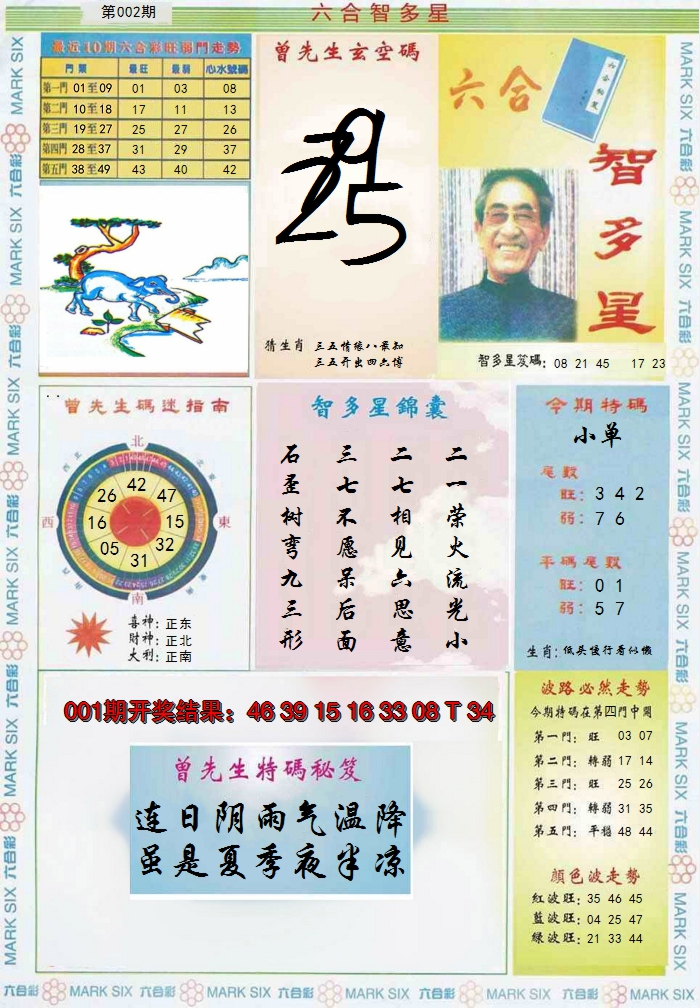 第002期
六合智多星
最近10期六合彩旺弱門走勢
門類 最旺 最弱 心水號碼
第一門 01至09 01 03 08
第二門 10至18 17 11 13
第三門 19至27 25 27 26
第四門 28至37 31 29 37
第五門 38至49 43 40 42
曾先生玄空碼
猜生肖 三五情缘八最知
三五开出四六博
六合
智多星
智多星笈碼: 08 21 45 17 23
曾先生碼迷指南
北
西
東
南
42
26 47
16 15
05 32
31
喜神: 正东
財神: 正北
大利: 正南
智多星錦囊
二一荣火流光小
二七相见六思意
三七不愿呆后面
石歪树弯九三形
今期特碼
小单
尾數
旺: 3 4 2
弱: 7 6
平碼尾數
旺: 0 1
弱: 5 7
生肖: 低头慢行看似懒
001期开奖结果: 46 39 15 16 33 08 T 34
曾先生特碼秘笈
连日阴雨气温降
虽是夏季夜半凉
波路必然走勢
今期特碼在第四門中開
第一門: 旺 03 07
第二門: 轉弱 17 14
第三門: 旺 25 26
第四門: 轉弱 31 35
第五門: 平穩 48 44
顔色波走勢
紅波旺: 35 46 45
藍波旺: 04 25 47
綠波旺: 21 33 44
六合彩 MARK SIX 六合彩 MARK SIX 六合彩 MARK SIX 六合彩 MARK SIX 六合彩 MARK SIX